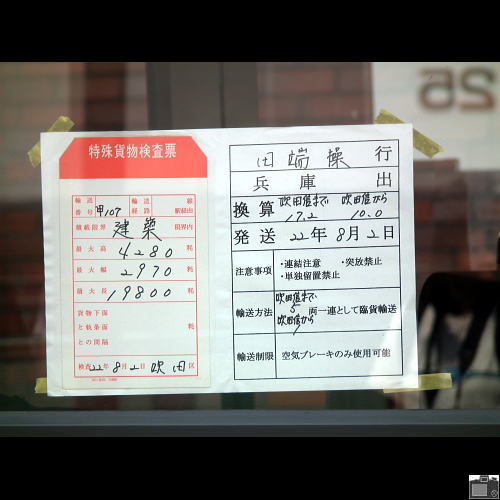 特殊貨物検査票
輸送番号 甲107 輸送経路 線駅経由
積載限界 建築 限界内
最大高 4280 粍
最大幅 2970 粍
最大長 19800 粍
貨物下面と軌条面との間隔 粍
検査 22年 8月 2日 吹田 区
田端操 行
兵庫 出
換算 吹田信まで 17.2 吹田信から 10.0
発送 22年 8月 2日
注意事項 ・連結注意 ・突放禁止
・単独留置禁止
輸送方法 吹田信まで 5 吹田信から 両一連として臨貨輸送
輸送制限 空気ブレーキのみ使用可能
26